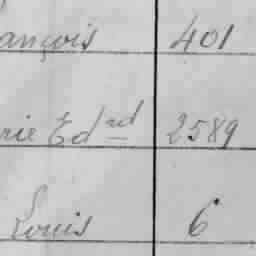 ançois 401
rie Edrd 2589
Louis 6